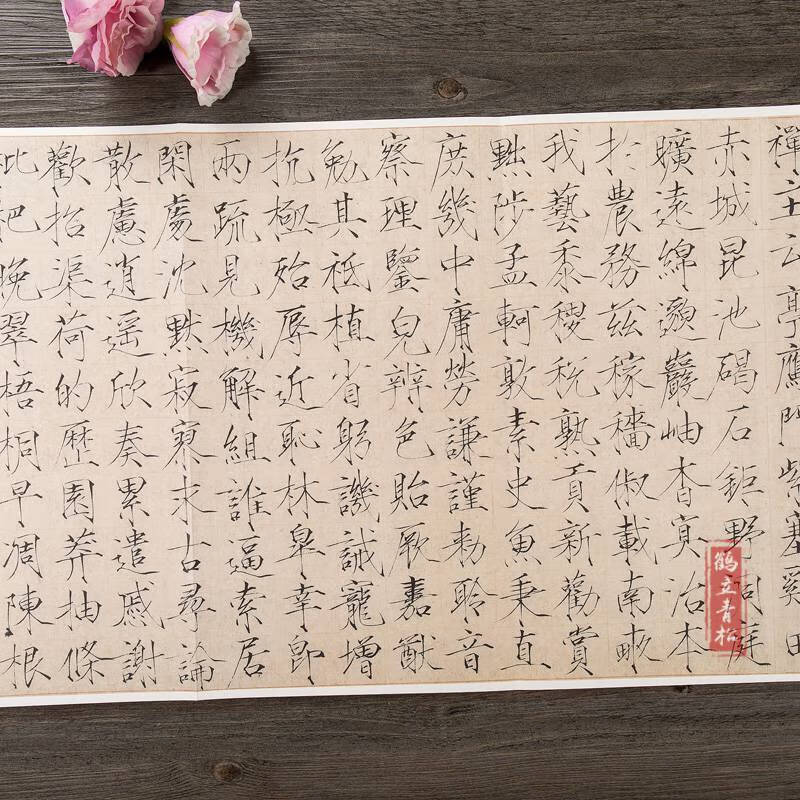 禪主云亭鴈門紫塞雞田
赤城昆池碣石鉅野洞庭
曠遠綿邈巖岫杳冥治本
於農務茲稼穡俶載南畝
我藝黍稷稅熟貢新勸賞
黜陟孟軻敦素史魚秉直
庶幾中庸勞謙謹勑聆音
察理鑒皃辨色貽厥嘉猷
勉其祗植省躬譏誡寵增
抗極殆辱近恥林皋幸即
兩疏見機解組誰逼索居
閑處沈默寂寥求古尋論
散慮逍遙欣奏累遣慼謝
歡招渠荷的歷園莽抽條
枇杷晚翠梧桐早凋陳根
鶴立青松